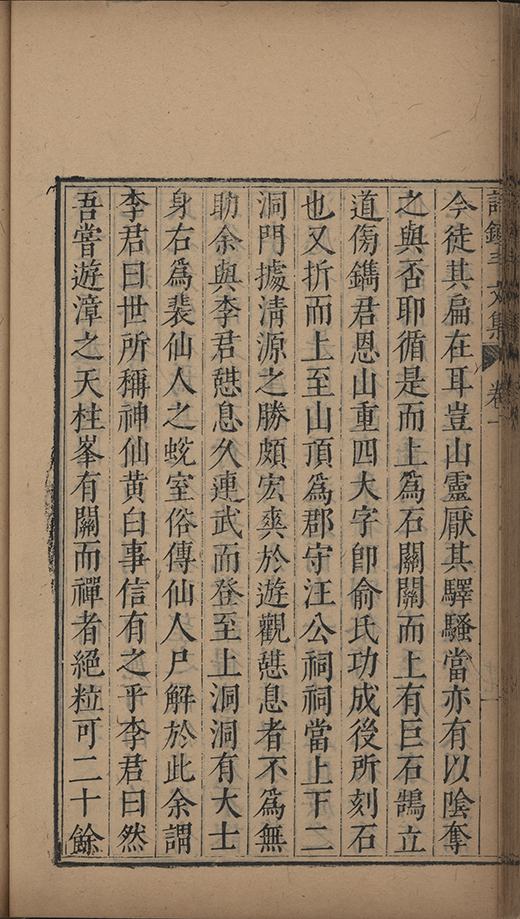 許鍾斗文集 卷一
今徒其扁在耳豈山靈厭其驛騷當亦有以陰奪
之與否耶循是而上爲石關關而上有巨石鵠立
道傍鐫君恩山重四大字卽俞氏功成後所刻石
也又折而上至山頂爲郡守汪公祠祠當上下二
洞門據清源之勝頗宏爽於遊觀憇息者不爲無
助余與李君憇息久連武而登至上洞洞有大士
身右爲裴仙人之蛻室俗傳仙人尸解於此余謂
李君曰世所稱神仙黃白事信有之乎李君曰然
吾嘗遊漳之天柱峯有關而禪者絕粒可二十餘